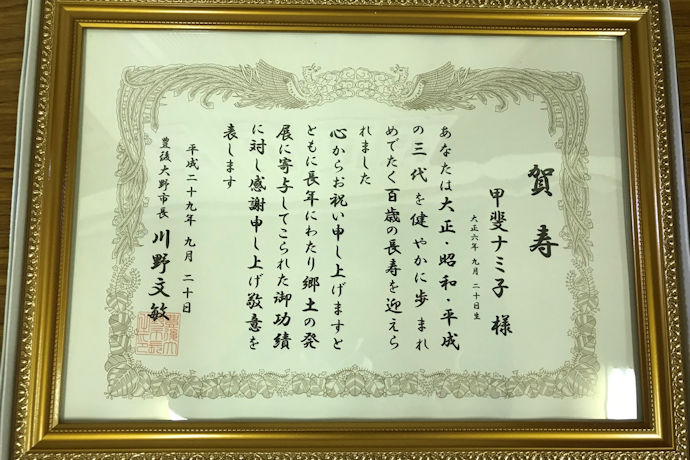 賀寿
甲斐ナミ子 様
大正六年 九月 二十日生
あなたは大正・昭和・平成
の三代を健やかに歩まれ
めでたく百歳の長寿を迎えら
れました
心からお祝い申し上げますと
ともに長年にわたり郷土の発
展に寄与してこられた御功績
に対し感謝申し上げ敬意を
表します
平成二十九年 九月 二十日
豊後大野市長 川野文敏